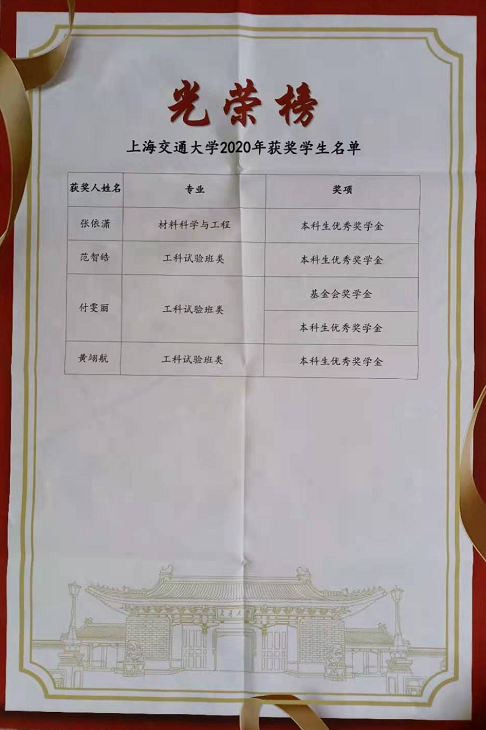 光荣榜
上海交通大学2020年获奖学生名单
获奖人姓名 专业 奖项
张依潇 材料科学与工程 本科生优秀奖学金
范智皓 工科试验班类 本科生优秀奖学金
付雯丽 工科试验班类 基金会奖学金
本科生优秀奖学金
黄翊航 工科试验班类 本科生优秀奖学金